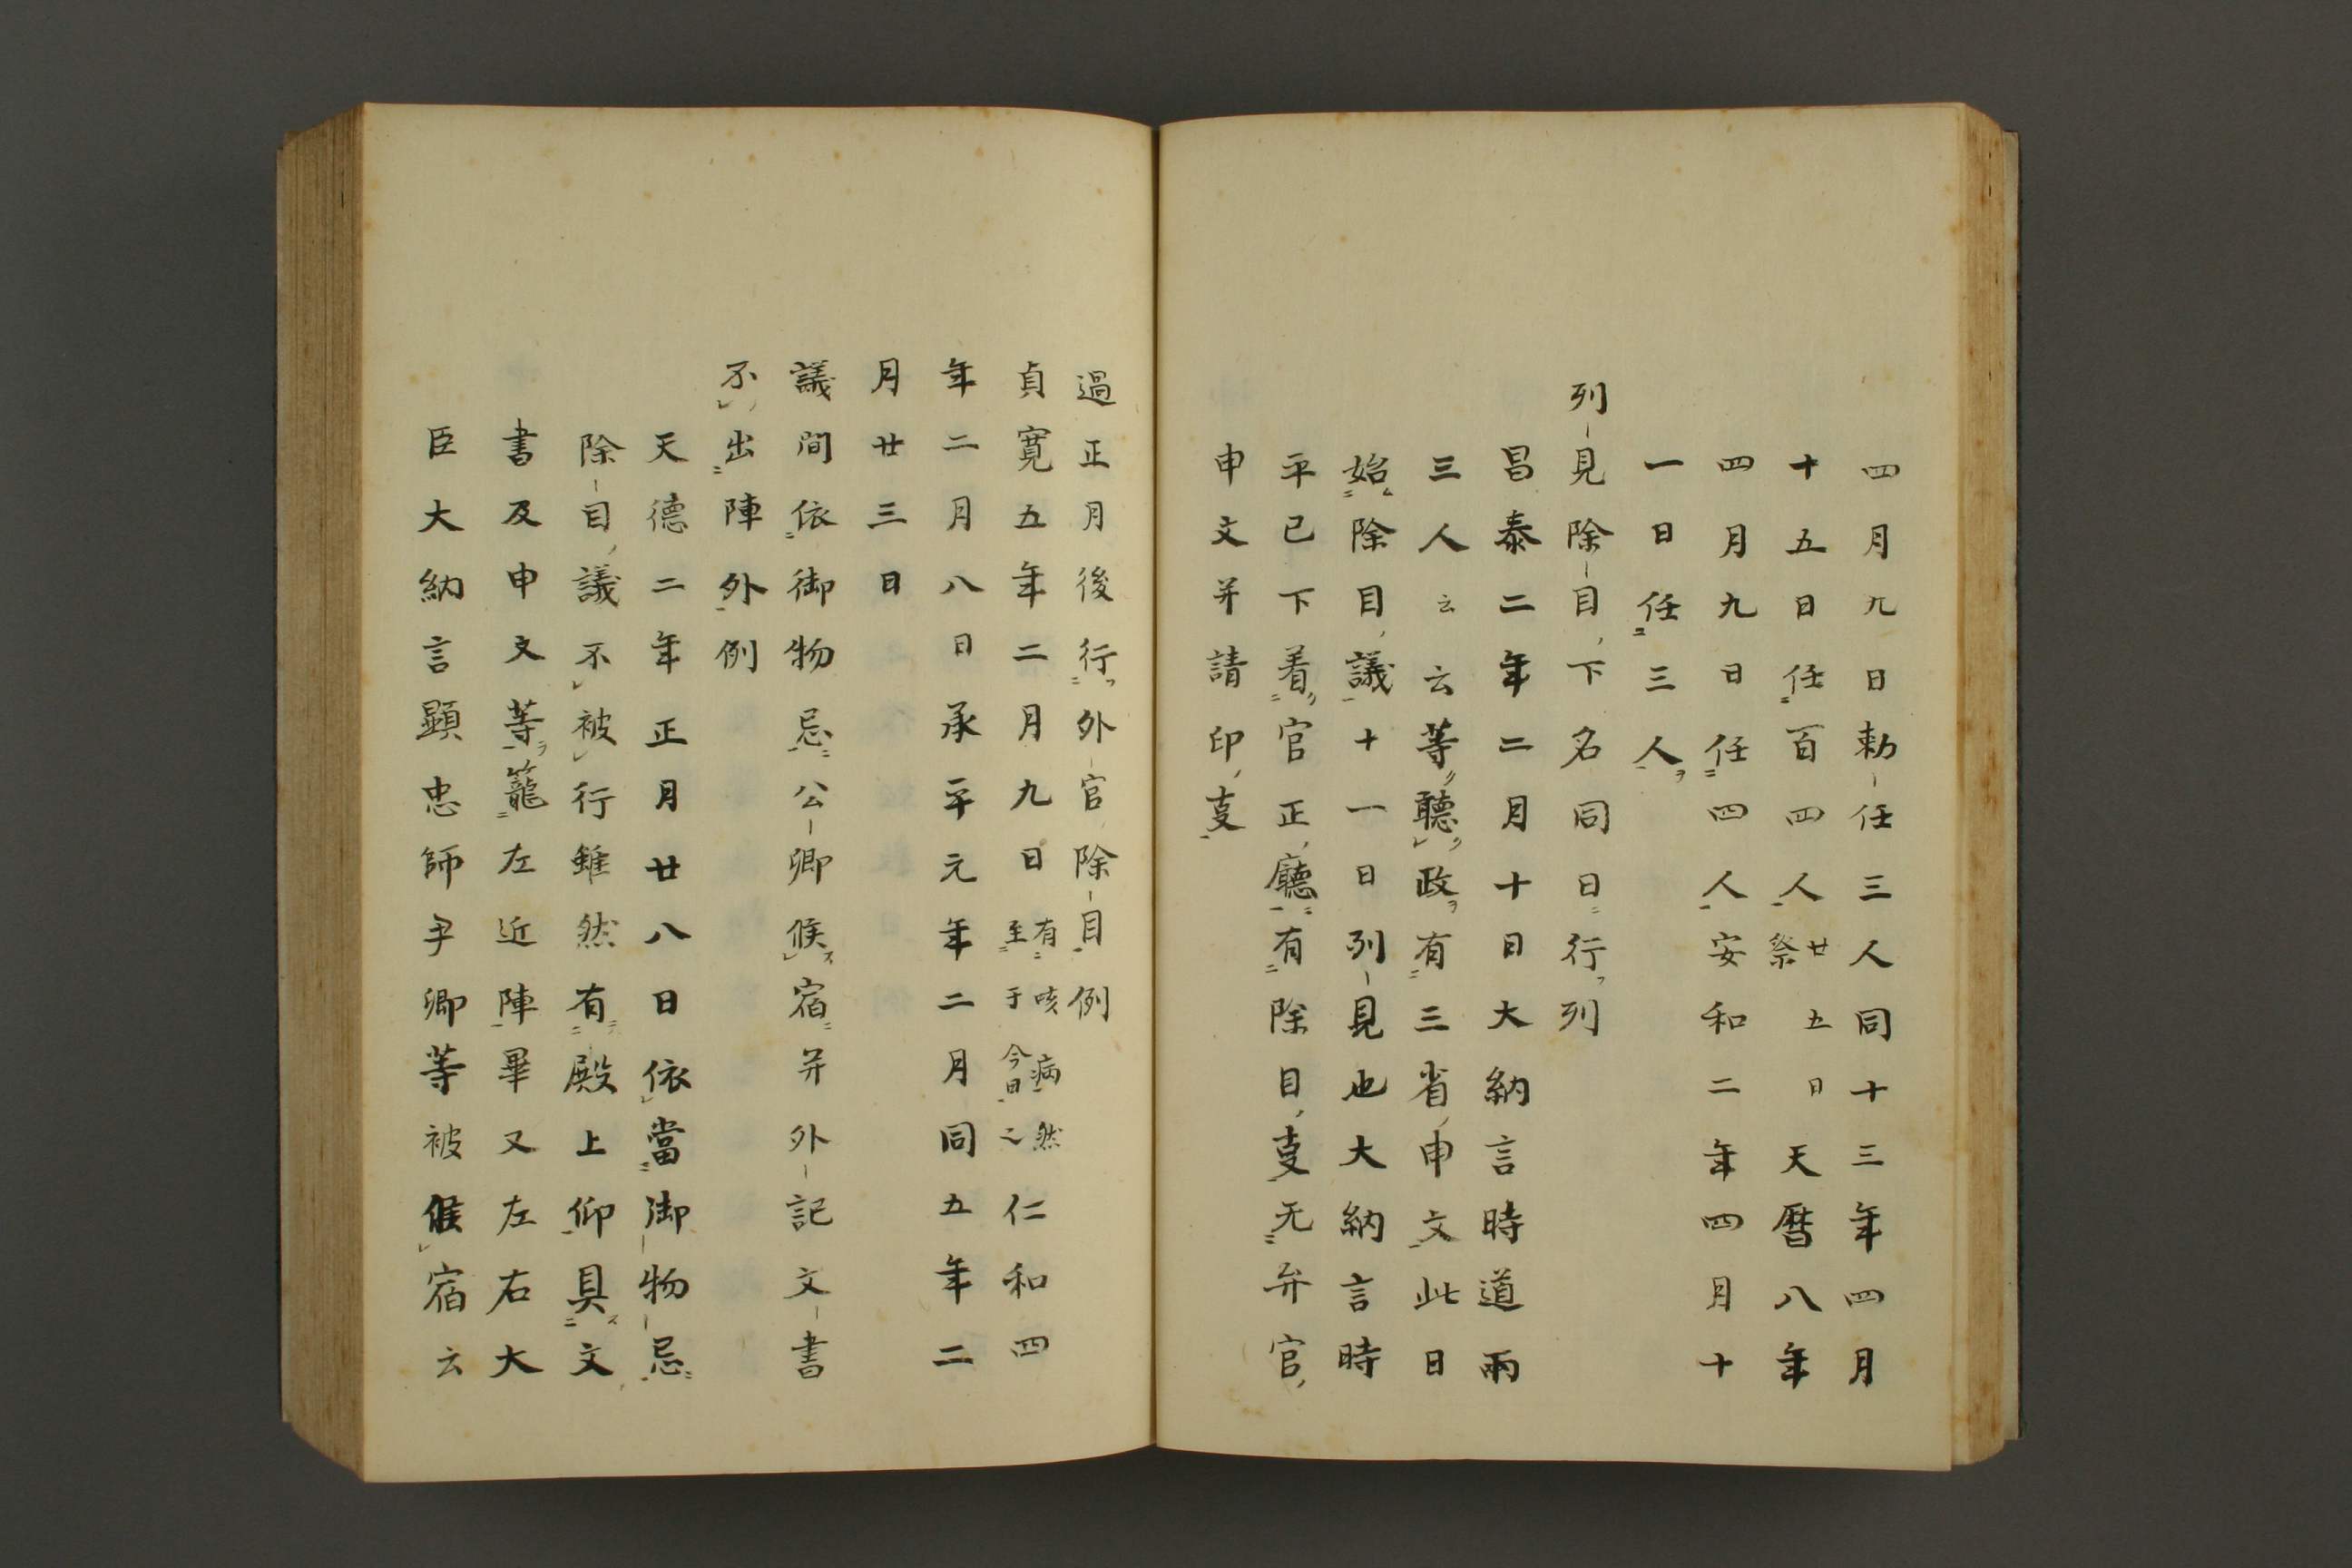 四月九日勅任三人同十三年四月
十五日任百四人廿五日祭天暦八年
四月九日任四人安和二年四月十
一日任三人
列見除目下名同日行列
昌泰二年二月十日大納言時道両
三人云云等聴政有三省申文此日
始除目議十一日列見也大納言時
平已下着官正廳有除目㕝无弁官
申文并請印㕝
過正月後行外官除目例
貞寛五年二月九日有咳病然至于今日之仁和四
年二月八日承平元年二月同五年二
月廿三日
議間依御物忌公卿候宿并外記文書
不出陣外例
天德二年正月廿八日依當御物忌
除目議不被行雖然有殿上仰具文
書及申文等籠左近陣畢又左右大
臣大納言顕忠師尹卿等被候宿云